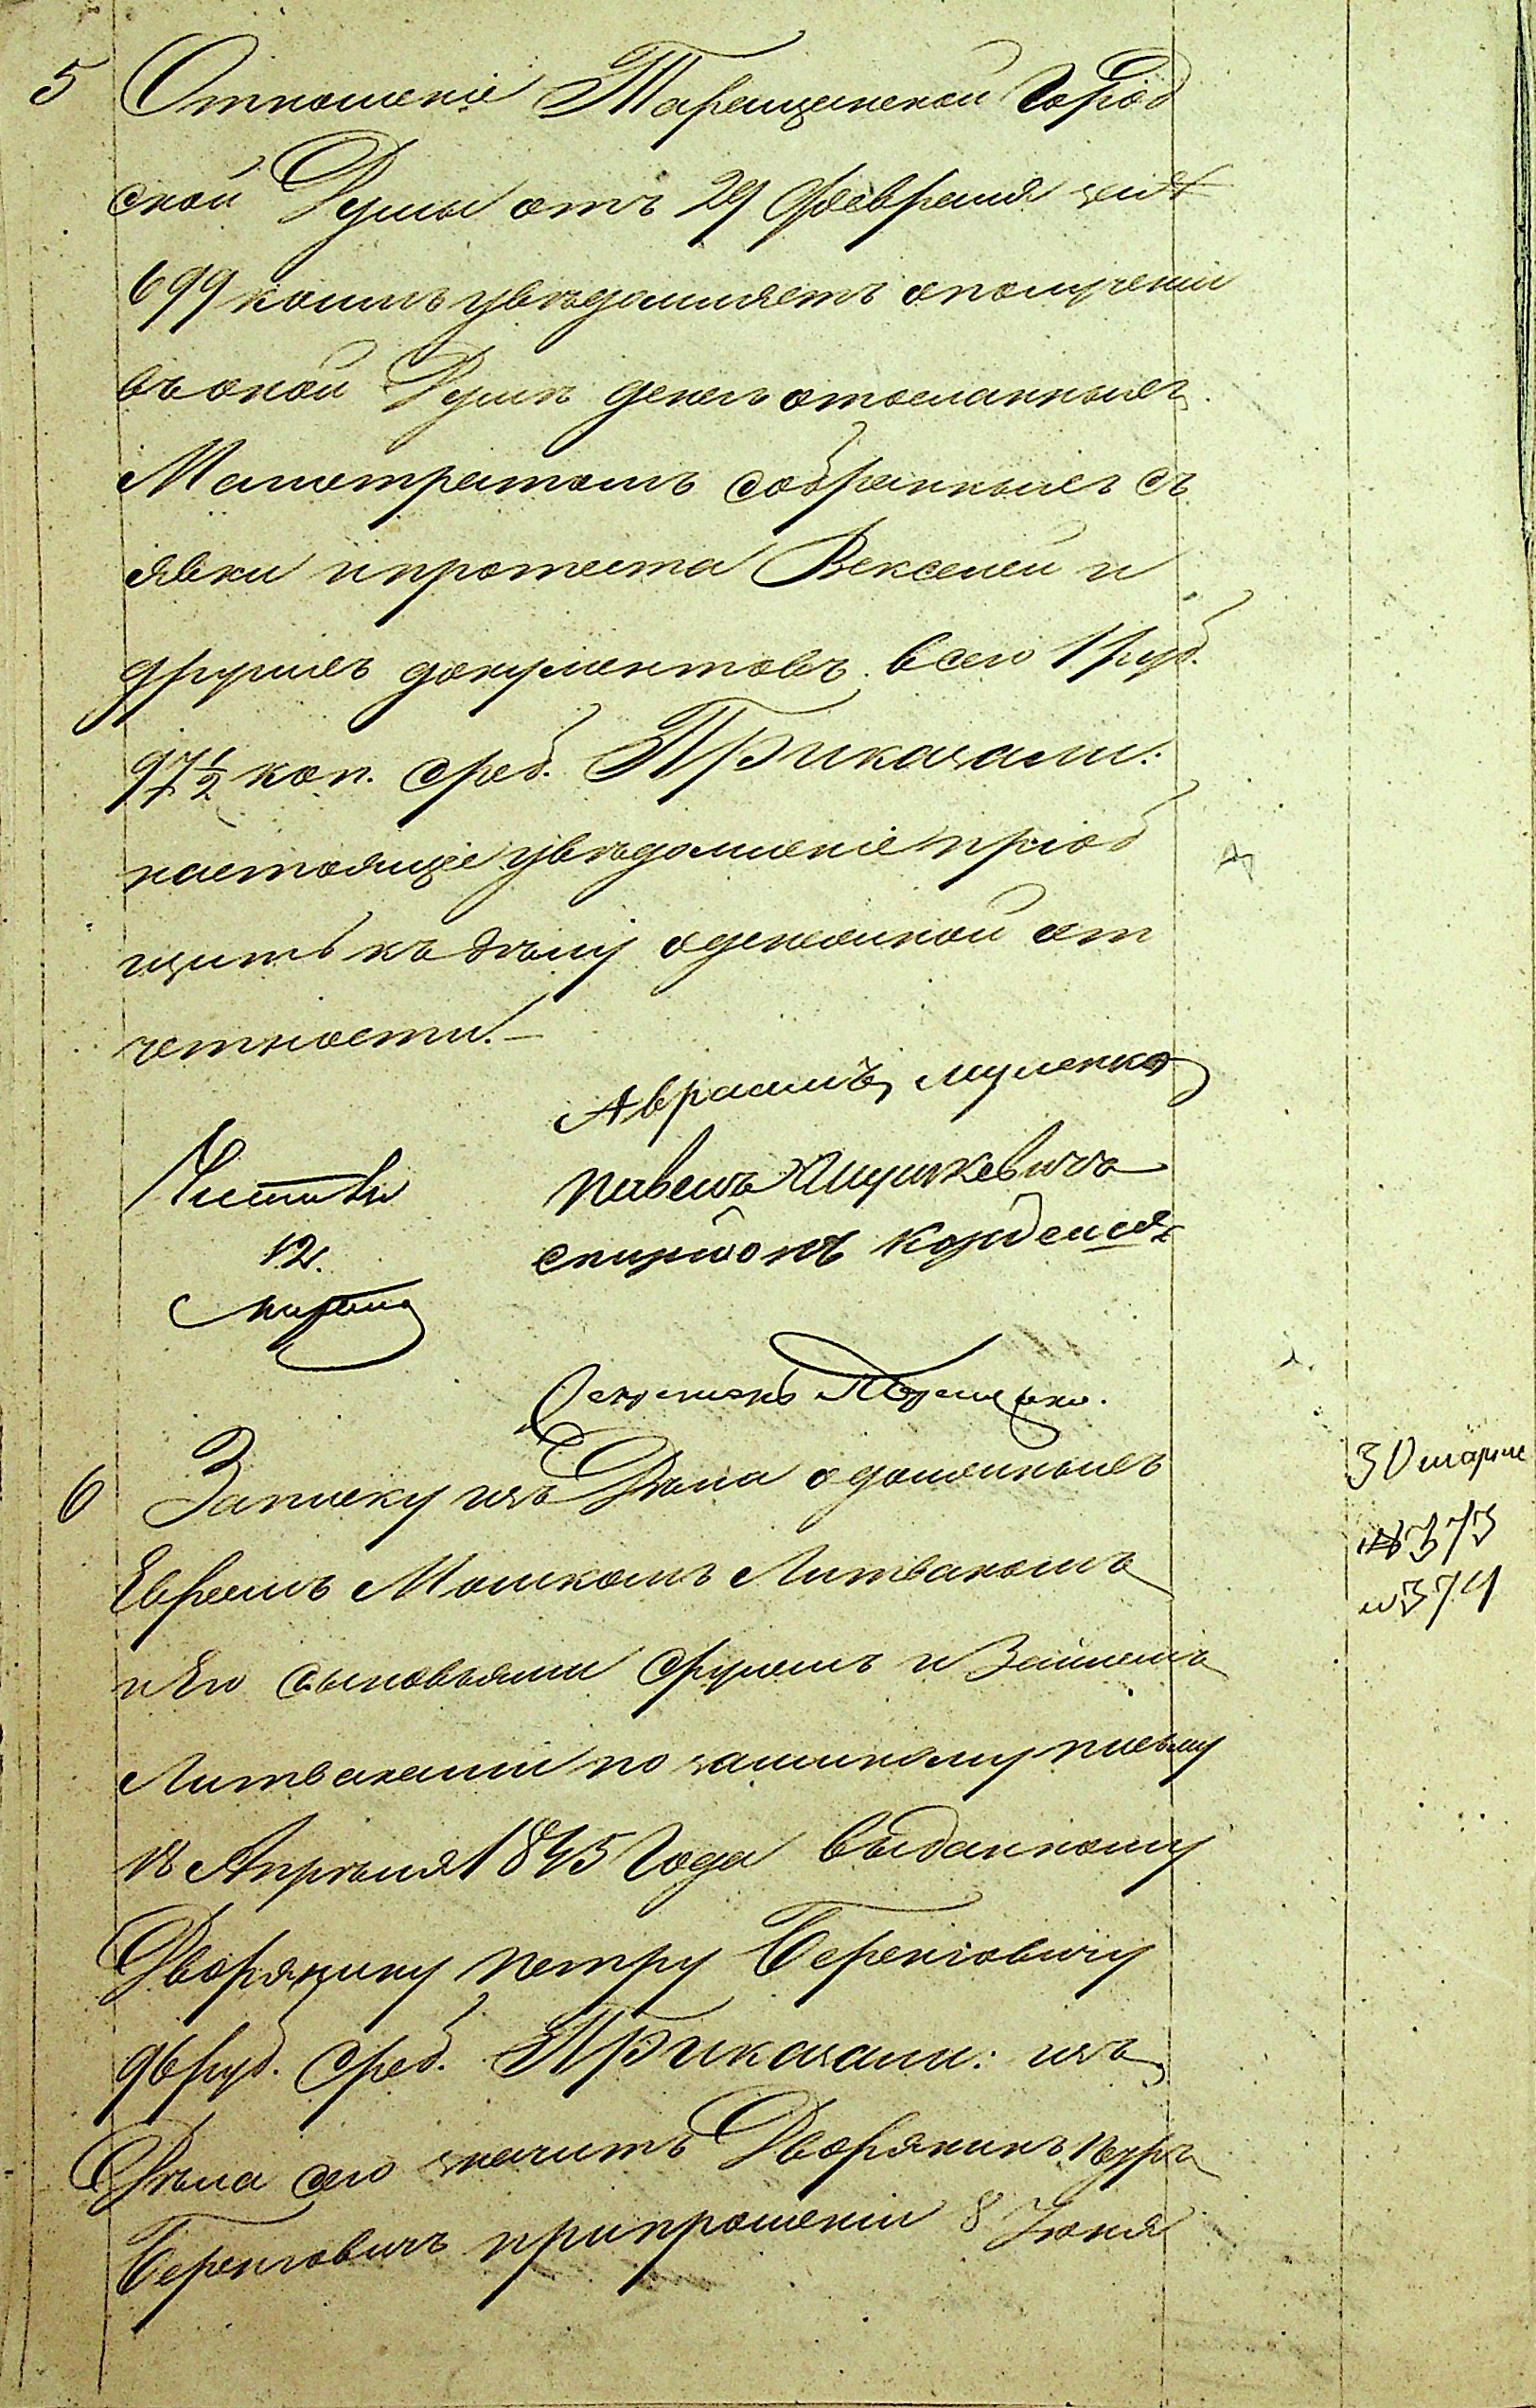 5 Отношеніе Таращанской Город
ской Думы отъ 29 февраля за №
699 коимъ увѣдомляетъ ополученіи
въ оной Думѣ денегъ отосланныхъ
Магистратомъ собранныхъ съ
явки ипротеста Векселей и
другихъ документовъ всего 1 руб.
97 1/2 коп. сереб. Приказали:
настоящіе увѣдомленіе пріоб
щить къ дѣлу оденежной от
четности.—
Авраамъ
Павелъ
12. Спиридонъ
Марта
Секретарь
6 Записку изъ Дѣла одолжныхъ
30 марта
Евреемъ Мошкомъ Литвакомъ
№ 373
и Его сыновьями Срулемъ и
и 374
Литваками по заемному письму
18 Апрѣля 1845 Года выданному
Дворянину Петру
96 руб. Сереб. Приказали: изъ
Дѣла сего значитъ Дворянинъ Петръ
припрошеніи 8 Іюня